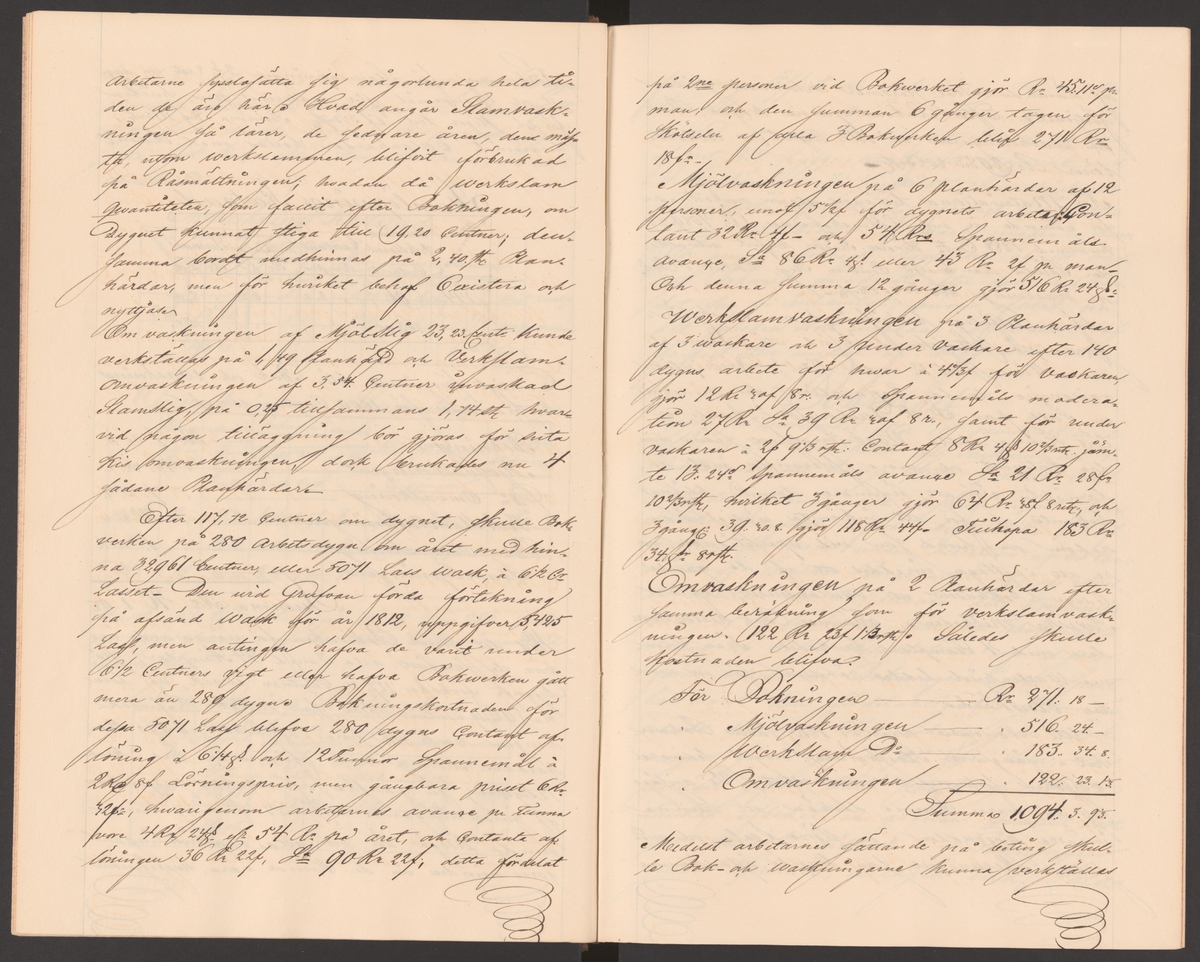 arbetarne sysslosätta sig någorlunda hela ti-
den de äro här. Hvad angår Slamvask-
ningen så lärer, de sednare åren, dens mäs-
ta, utom werkslammen, blifvit förbrukad
på Råsmältningen; hvadan då werkslam
qvantiteten, som fallit efter Bokningen, om
Dygnet kunnat stiga till 19,20 Centner; den-
samma bordt medhinnas på 2,40 st. Plan-
härdar, men för hvilket behof 6 existera och
nyttjas.
Omvaskningen af Mjölslig 23,23 Cent. kunde
verkställas på 1,49 Planhärd och Verkslam-
omvaskningen af 3,54 Centner invaskad
Slamslig, på 0,25 tillsammans 1,74 st. hvar-
vid någon tilläggning bör göras för hvita
kis omvaskningen, dock brukades nu 4
sådane Planhärdar.
Efter 117,72 Centner om dygnet, skulle Bok
verken på 280 Arbetsdygn om året medhin-
na 32961 Centner, eller 5071 Lass wask, à 6 1/2 Cr
Lasset. Den vid Grufvan förda förtekning
på afsänd wask för år 1812, uppgifver 5,425
Lass, men antingen hafva de varit under
6 1/2 Centners vigt eller hafva Bokwerken gått
mera än 280 dygn. Bokningskostnaden för
dessa 5071 Lass blefve 280 dygns Contant af-
löning à 6 1/4 s och 12 Tunnor Spannemål à
2 Rd 8 s Löningspris, men gångbara priset 6 Rr
32 s, hvarigenom arbetarnes avange pr Tunna
vore 4 Rr 24 s el. 54 Rr på året, och Contanta af-
löningen 36 Rr 22 s, Sa 90 Rr 22 s, detta fördelat
på 2ne personer vid Bokwerket gjör Rr 45. 11 s pr
man, och den summan 6 gånger tagen för
Skötseln af alla 3 Bokwerken blir 271 Rr
18 s.
Mjölvaskningen på 6 planhärdar af 12
personer, emot 5 1/2 s för dygnets arbete, Con-
tant 32 Rr 4 s och 54 Rrs Spannemåls
avange, Sa 86 Rr 4 s eller 43 Rr 2 s pr man
Och denna summa 12 gånger gjör 516 Rr 24 s
Werkslamvaskningen på 3 Planhärdar
af 3 waskare och 3 under vaskare efter 140
dygns arbete för hwar à 4 1/3 s för vaskaren,
gjör 12 Rr 30 s 8 r. och Spannemåls modera-
tion 27 Rr Sa 39 Rr 30 s 8 r., samt för under
vaskaren à 2 s 9 1/3 r.st. Contant 8 Rr 4 s 10 2/3 r.st. jäm-
te 13. 24 s Spannemåls avange Sa 21 Rr 28 s
10 2/3 r.st., hvilket 3 gånger gjör 64 Rr 38 s 8 r.st., och
3 gång: 39. 30. 8 gjör 118 Rr 44 s Tillhopa 183 Rr
34. s 8 r.st.
Omvaskningen på 2 Planhärdar efter
samma beräkning som för verkslamvask-
ningen. 122 Rr 23 s 1 1/3 r.st. Således skulle
kostnaden blifva.
För Bokningen — Rr 271. 18 —
" Mjölvaskningen — " 516. 24. —
" Werkslam Do — " 183. 34. 8.
" Omvaskningen — " 122. 23. 1 1/3.
Summa 1094. 3. 9 1/3.
Medelst arbetarnes sättande på beting skul-
le Bok- och waskningarne kunna verkställas